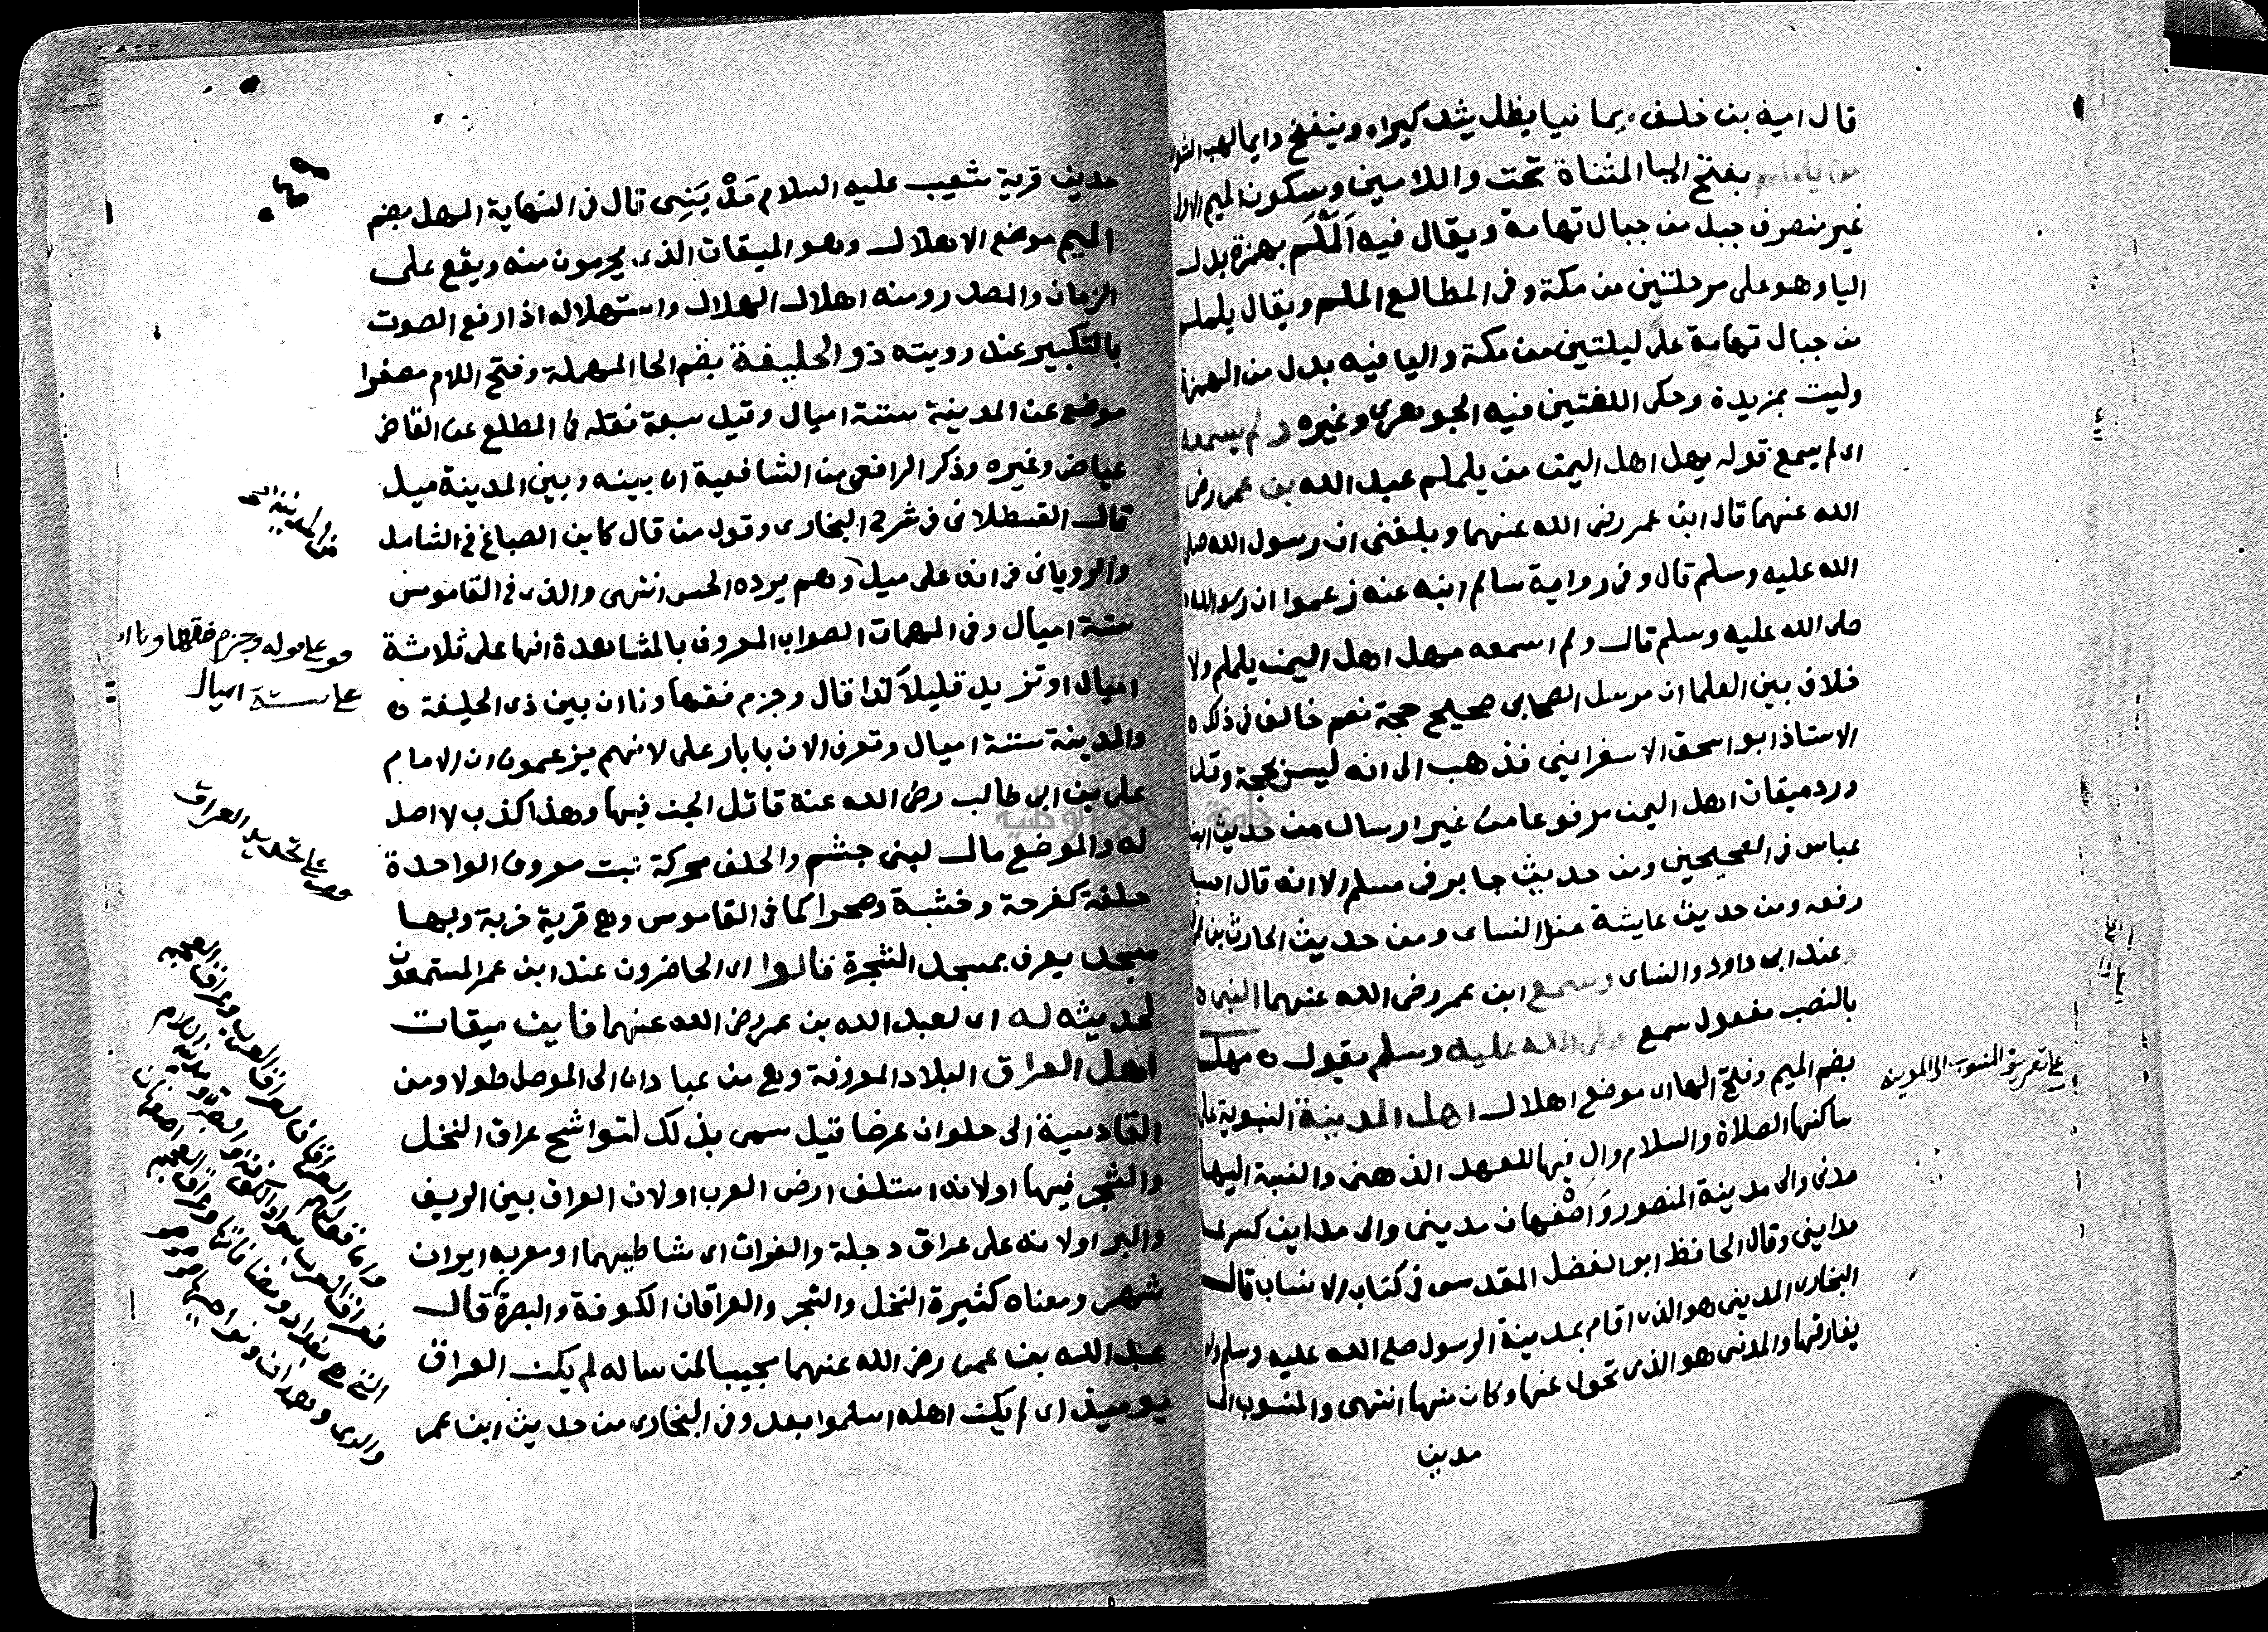 قال امية بن خلف، يمانيا يظل يشد كيرا، وينفخ دايما لهب الشواظ
من يلملم بفتح اليا المثناة تحت واللامين وسكون الميم الاولى
غير منصرف جبل من جبال تهامة ويقال فيه اَلَمْلَم بهمزة بدل
اليا وهو على مرحلتين من مكة وفي المطالع الملم ويقال يلملم
من جبال تهامة على ليلتين من مكة واليا فيه بدل من الهمزة
وليت بمزيدة وحكى اللغتين فيه الجوهري وغيره ولم يسمعه
اي لم يسمع قوله يهل اهل اليمن من يلملم عبد الله بن عمر رضي
الله عنهما قال ابن عمر رضي الله عنهما وبلغني ان رسول الله صلى
الله عليه وسلم قال وفي رواية سالم ابنه عنه زعموا ان رسول الله
صلى الله عليه وسلم قال ولم اسمعه مهل اهل اليمن يلملم ولا
خلاف بين العلما ان مرسل الصحابي صحيح حجة نعم خالف في ذلك
الاستاذ ابو اسحق الاسفرايني فذهب الى انه ليس بحجة وقد
ورد ميقات اهل اليمن مرفوعا من غير ارسال من حديث ابن
عباس في الصحيحين ومن حديث جابر في مسلم الا انه قال احسبه
رفعه ومن حديث عايشة عند النساى ومن حديث الحارث بن
عند ابى داود والنساى وسمع ابن عمر رضي الله عنهما النبي
بالنصب مفعول سمع صلى الله عليه وسلم يقول مهل
بضم الميم وفتح الها اى موضع اهلال اهل المدينة النبوية على
ساكنها الصلاة والسلام وال فيها للعهد الذهنى والنسبة اليها
مدنى والى مدينة المنصور وَاصْفهان مدينى والى مداين كسرى
مداينى وقال الحافظ ابو الفضل المقدسى في كتاب الانساب قال
البخارى المدينى هو الذى اقام بمدينة الرسول صلى الله عليه وسلم ولم
يفارقها والمدنى هو الذى تحول عنها وكان منها انتهى والمنسوب الى
مدين
على تعريف المنسوب الى المدينة
مدين قرية شعيب عليه السلام مَدْيَنِى قال في النهاية المهل بضم
الميم موضع الاهلال وهو الميقات الذى يحرمون منه ويقع على
الزمان والمصدر ومنه اهلال الهلال واستهلاله اذا رفع الصوت
بالتكبير عند رويته ذو الحليفة بضم الحا المهملة وفتح اللام مصغرا
موضع عن المدينة ستة اميال وقيل سبعة نقله في المطلع عن القاضى
عياض وغيره وذكر الرافعى من الشافعية ان بينه وبين المدينة ميل
قال القسطلانى في شرح البخارى وقول من قال كابن الصباغ في الشامل
والرويانى في انه على ميل وهم يرده الحس انتهى والذى في القاموس
ستة اميال وفي المهمات الصواب المعروف بالمشاهدة انها على ثلاثة
اميال او تزيد قليلا كذا قال وجزم فقهاونا ان بين ذى الحليفة
والمدينة ستة اميال وتعرف الان بابار على لانهم يزعمون ان الامام
على بن ابى طالب رضي الله عنه قاتل الجن فيها وهذا كذب لا اصل
له والموضع مال لبنى جشم والحلف محركة نبت معروف الواحدة
حلفة كفرحة وخشبة وصحرا كما في القاموس وهي قرية خربة وبها
مسجد يعرف بمسجد الشجرة قالوا اى الحاضرون عند ابن عمر المستمعون
لحديثه له اى لعبد الله بن عمر رضي الله عنهما فاين ميقات
اهل العراق البلاد المعروفة وهي من عبادان الى الموصل طولا ومن
القادسية الى حلوان عرضا قيل سمى بذلك لتواشح عراق النخل
والشجر فيها اولانه استلف ارض العرب اولان العراق بين الريف
والبر اولانه على عراق دجلة والفرات اى شاطيهما او معربه ايران
شهر ومعناه كثيرة النخل والشجر والعراقان الكوفة والبصرة قال
عبد الله بن عمر رضي الله عنهما مجيبا لمن ساله لم يكن العراق
يوميذ اى لم يكن اهله اسلموا بعد وفي البخارى من حديث ابن عمر
من المدينة الى
قف على قوله وجزم فقهاونا ان
على ستة اميال
قف على تحديد العراق